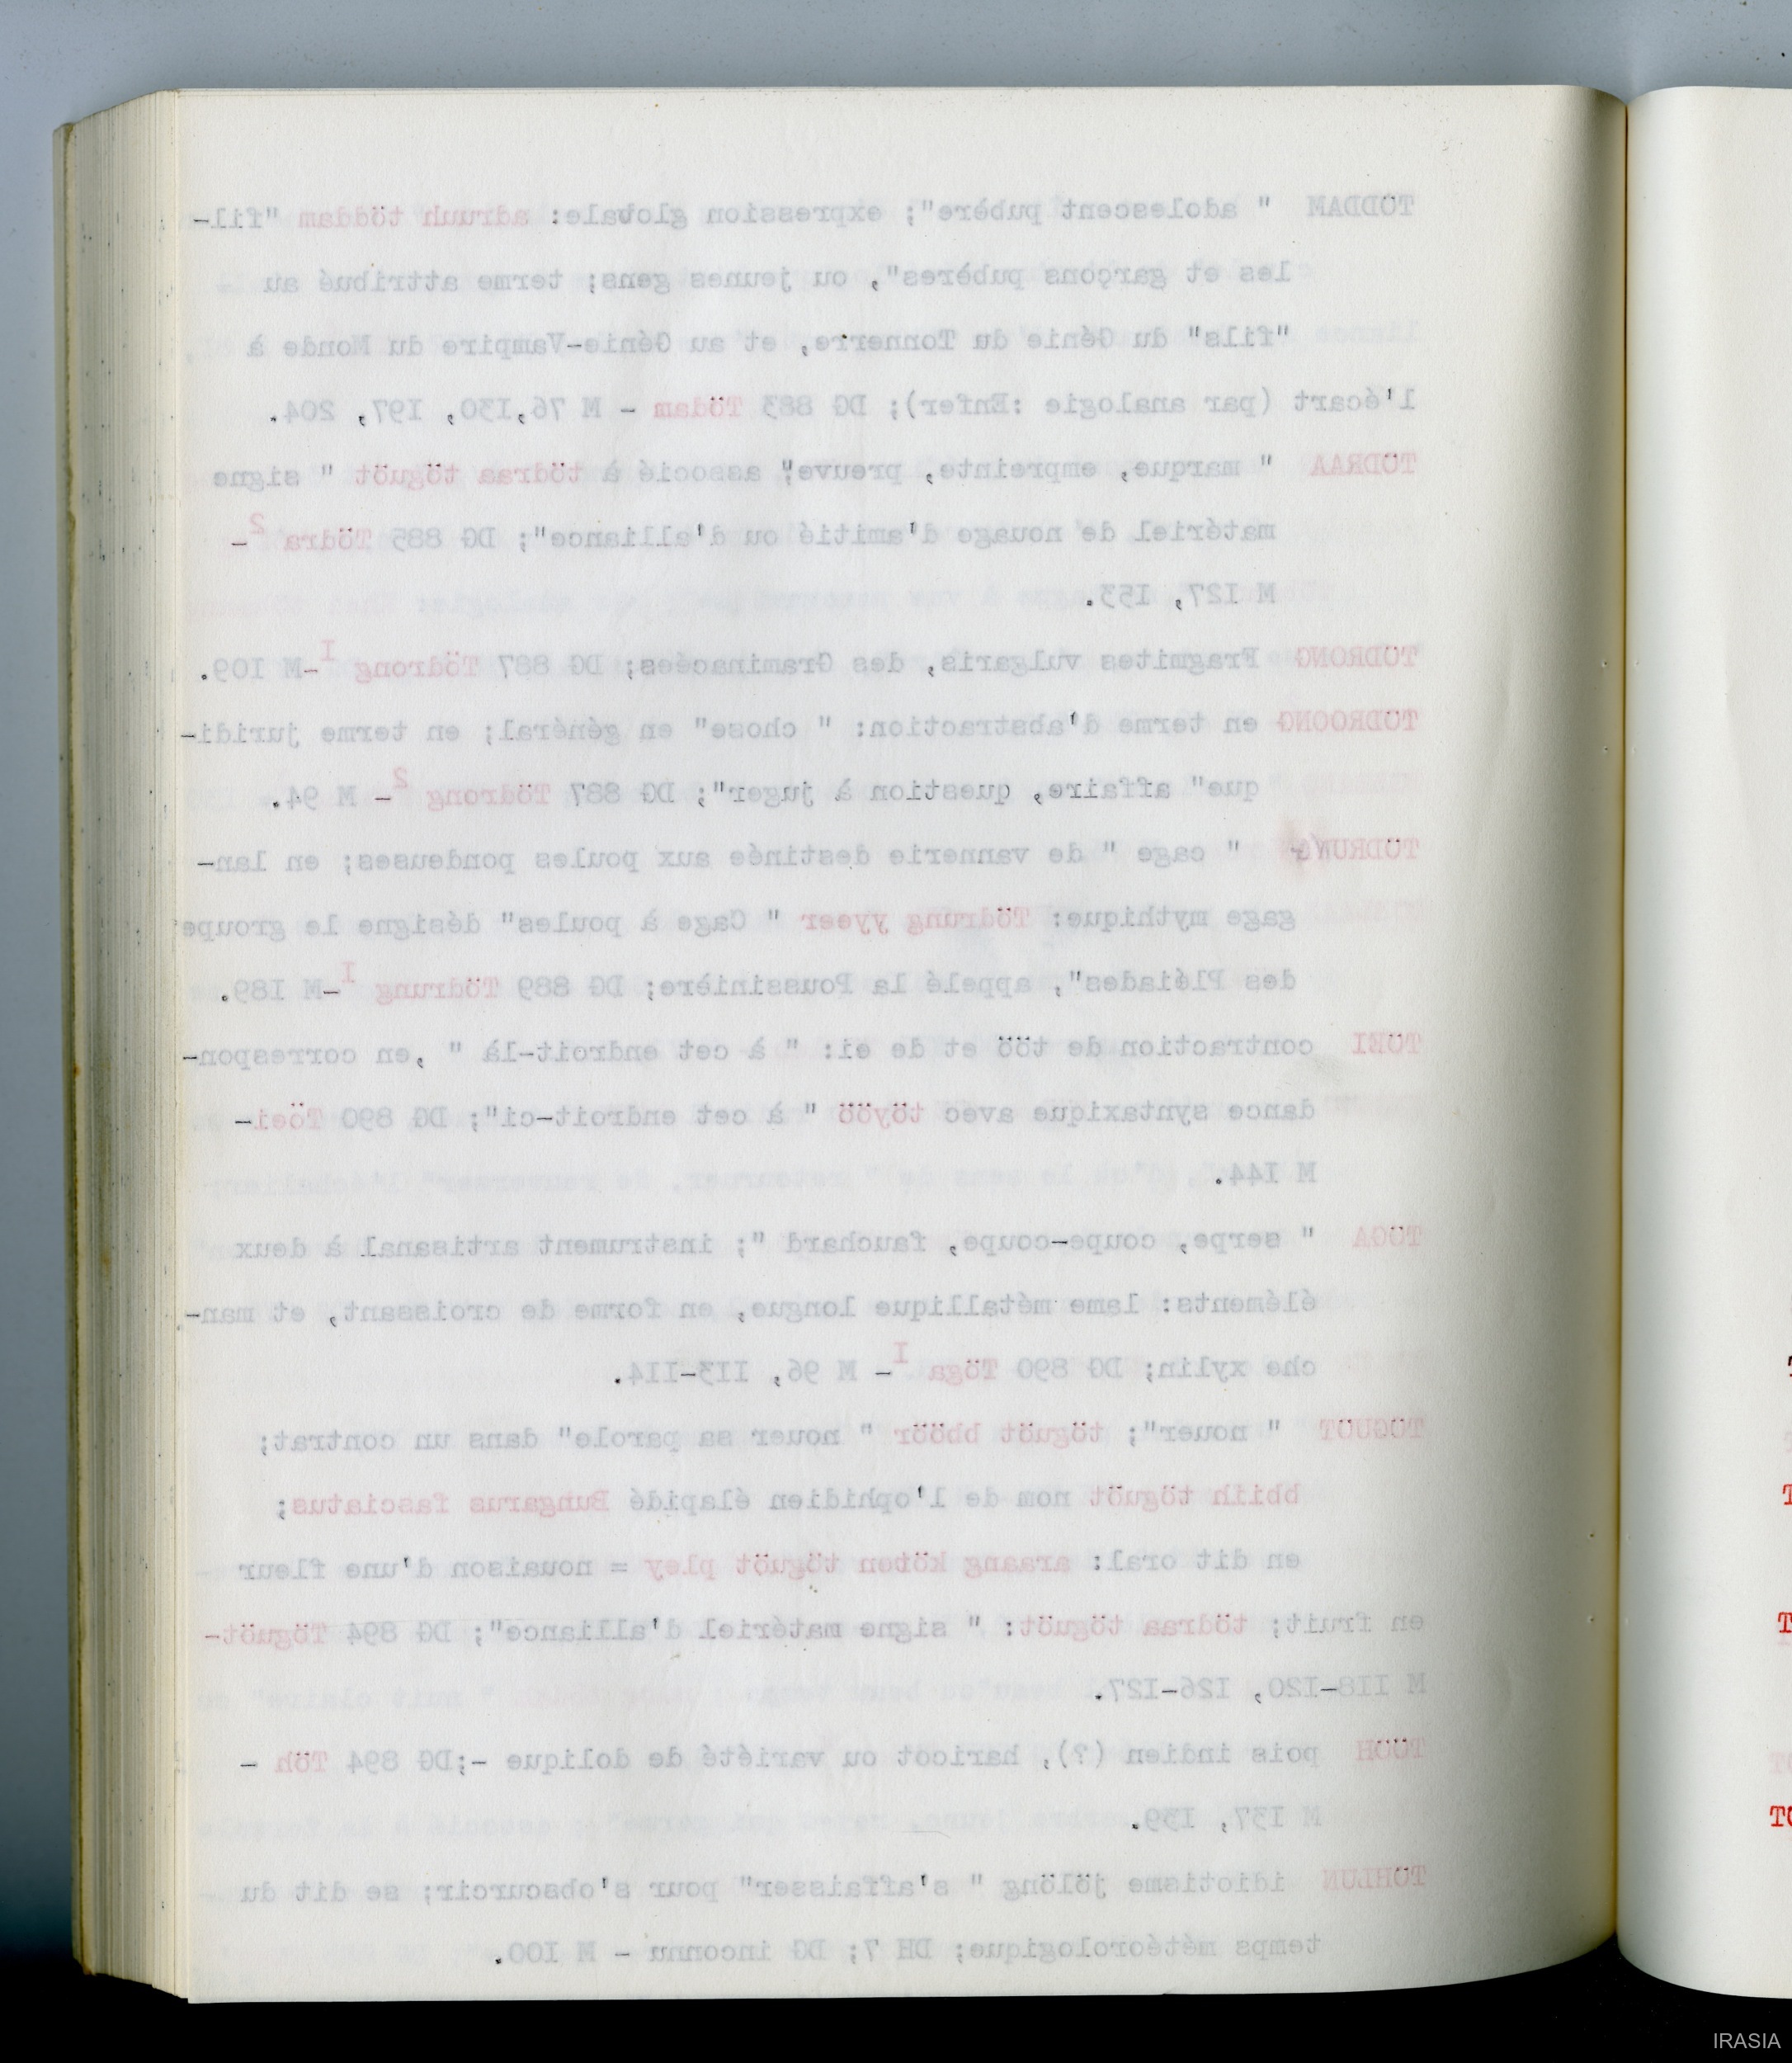 TÖDDAM " adolescent pubère"; expression globale: adruuh töddam "fil-
les et garçons pubères", ou jeunes gens; terme attribué au
"fils" du Génie du Tonnerre, et au Génie-Vampire du Monde à
l'écart (par analogie :Enfer); DG 883 Tödam - M 76,I30, I97, 204.
TÖDRAA " marque, empreinte, preuve" associé à tödraa töguöt " signe
matériel de nouage d'amitié ou d'alliance"; DG 885 Tödra 2-
M I27, I53.
TÖDRONG Fragmites vulgaris, des Graminacées; DG 887 Tödrong I-M I09.
TÖDROONG en terme d'abstraction: " chose" en général; en terme juridi-
que" affaire, question à juger"; DG 887 Tödrong 2- M 94.
TÖDRUNG " cage " de vannerie destinée aux poules pondeuses; en lan-
gage mythique: Tödrung yyeer " Cage à poules" désigne le groupe
des Pléiades", appelé la Poussinière; DG 889 Tödrung I-M I89.
TÖEI contraction de töö et de ei: " à cet endroit-là " ,en correspon-
dance syntaxique avec töyöö " à cet endroit-ci"; DG 890 Töei-
M I44.
TÖGA " serpe, coupe-coupe, fauchard "; instrument artisanal à deux
éléments: lame métallique longue, en forme de croissant, et man-
che xylin; DG 890 Töga I- M 96, II3-II4.
TÖGUÖT " nouer"; töguöt bböör " nouer sa parole" dans un contrat;
bbiih töguöt nom de l'ophidien élapidé Bungarus fasciatus;
en dit oral: araang köten töguöt pley = nouaison d'une fleur
en fruit; tödraa töguöt: " signe matériel d'alliance"; DG 894 Töguöt-
M II8-I20, I26-I27.
TÖÖH pois indien (?), haricot ou variété de dolique -;DG 894 Töh -
M I37, I39.
TÖHLUN idiotisme jölöng " s'affaisser" pour s'obscurcir; se dit du
temps météorologique; DH 7; DG inconnu - M I00.
IRASIA